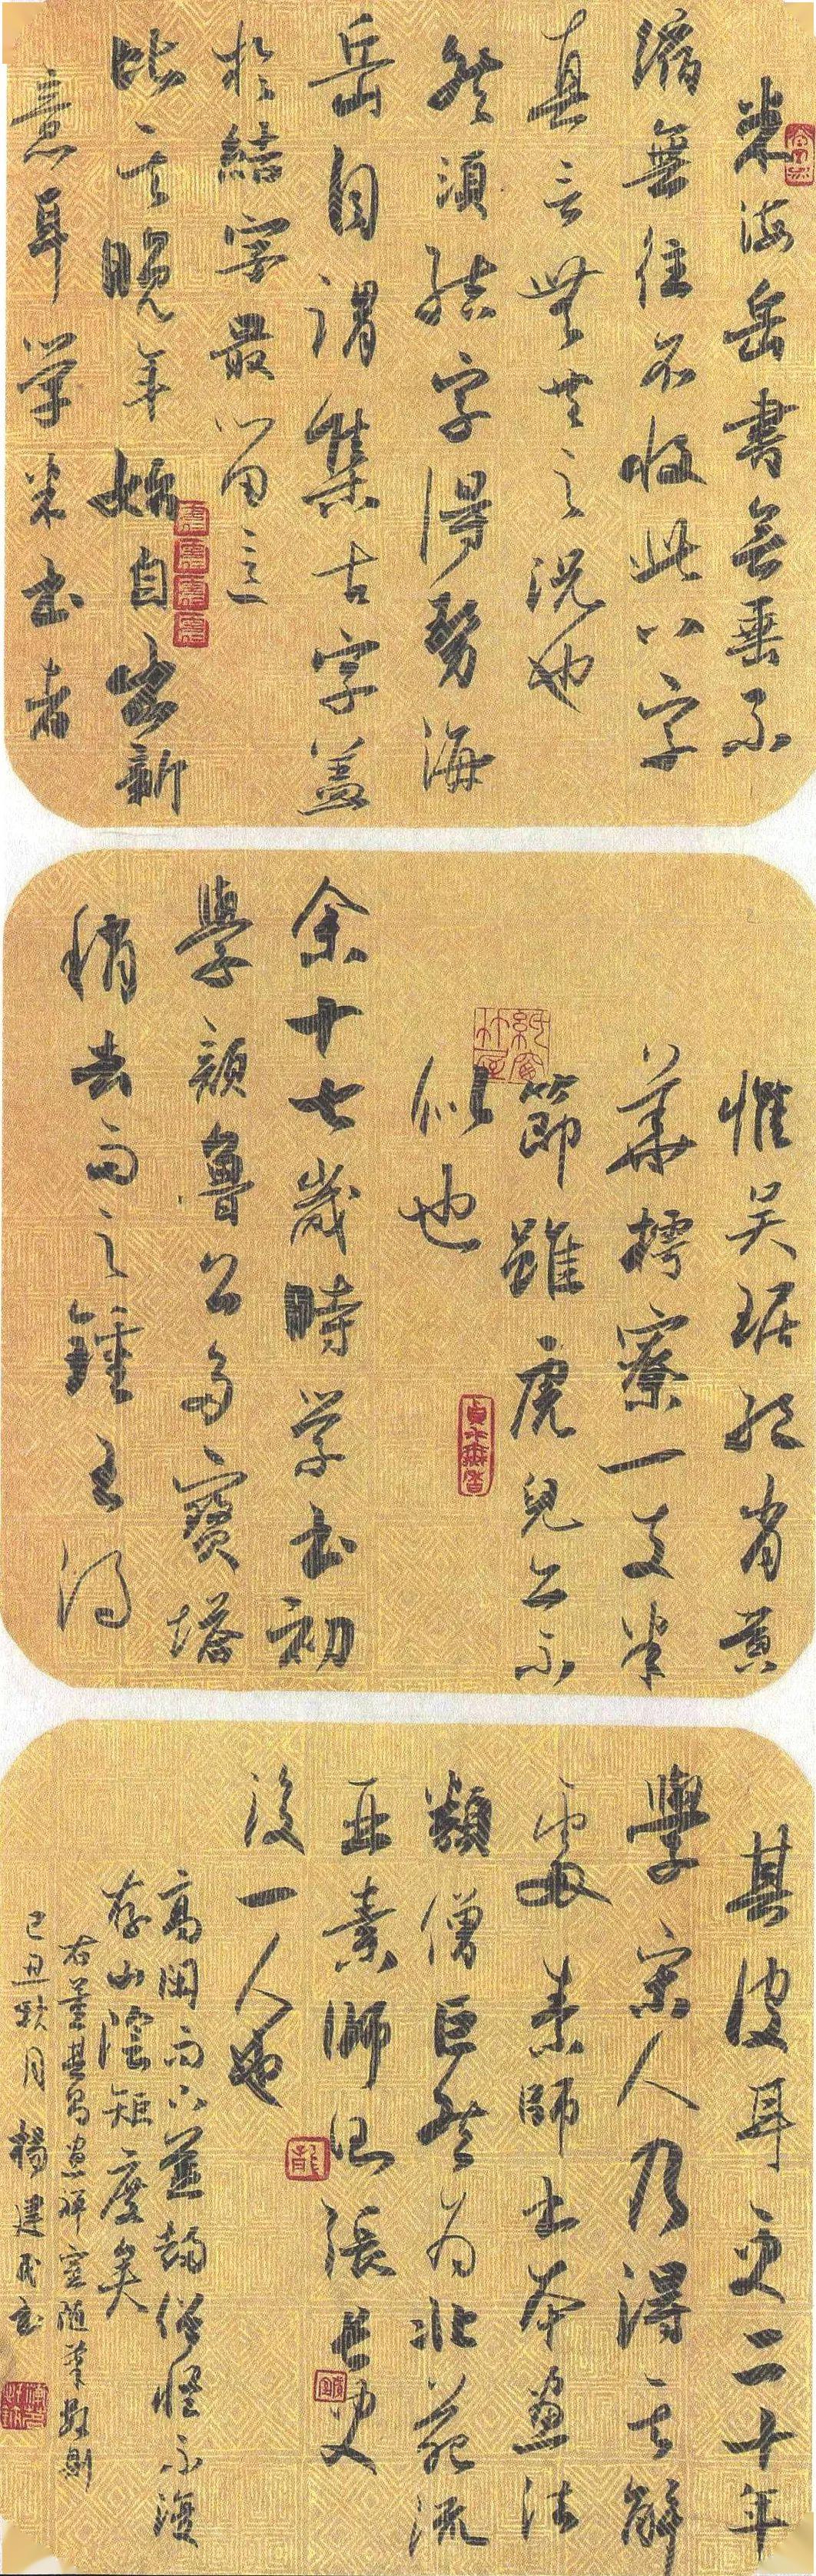 米海岳書無垂不
縮無往不收此八字
真言無等之況也
然須結字得勢海
岳自謂集古字蓋
於結字最留意
比其晚年始自出新
意耳學米書者
惟吴琚絶肖黄
華樗寮一支半
節雖虎兒亦不
似也
余十七歲時學書初
學顔魯公多寶塔
稍去而之鍾王得
其皮耳更二十年
學宋人乃得其解
處素師書本畫法
類僧巨然為北苑流
亞素師則張長史
後一人也
高閑而下益趨俗怪不復
存山陰矩度矣
右董其昌畫禅室随筆數則
己丑秋月楊建民書